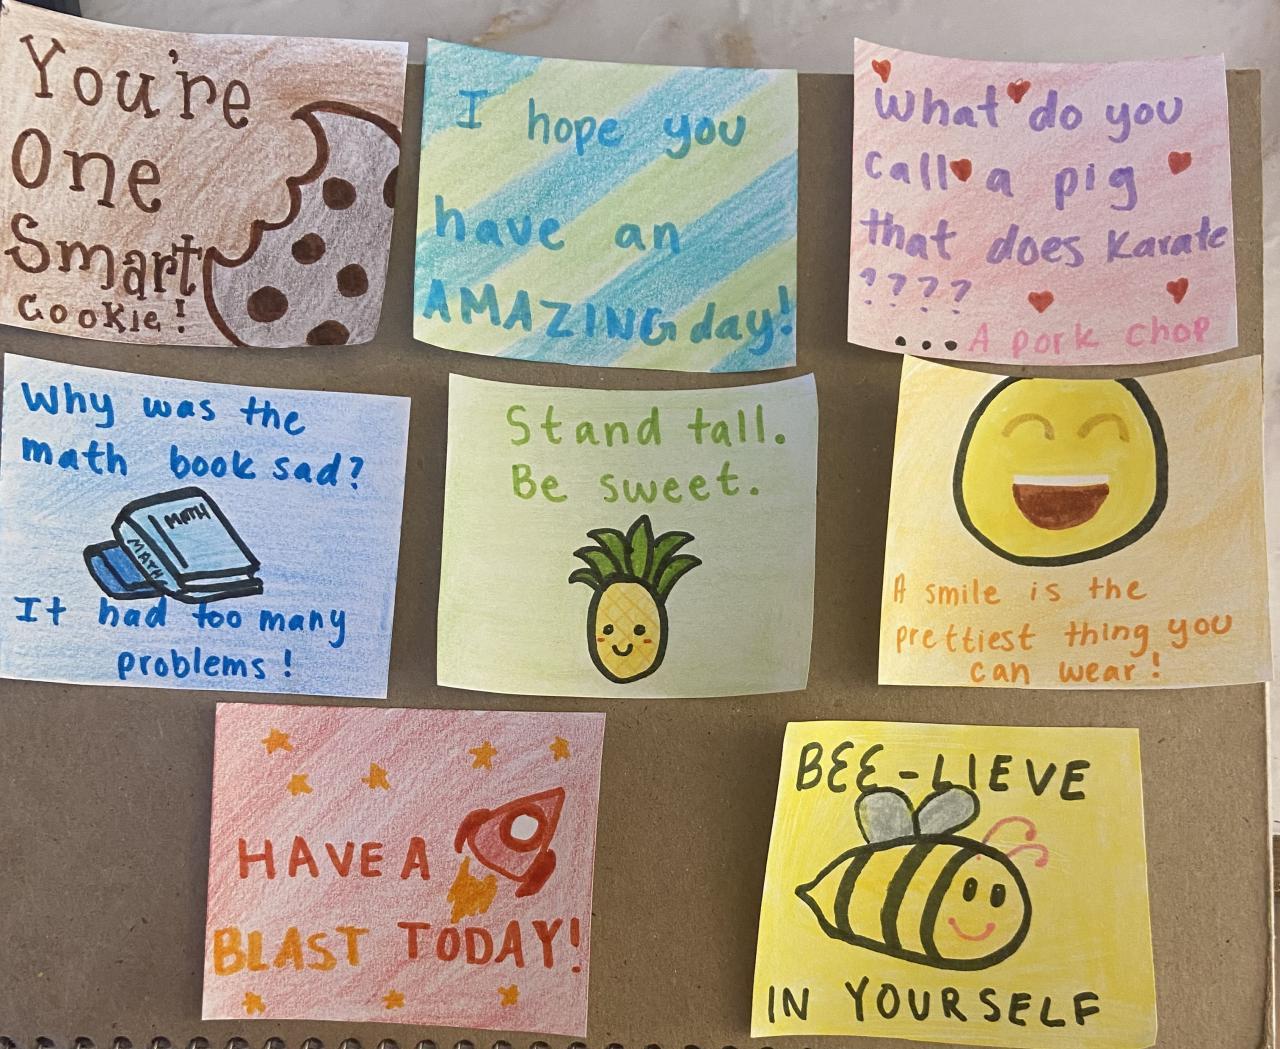 You're
One
Smart
Cookie!
I hope you
have an
AMAZING day!
What do you
call a pig
that does Karate
????
... A pork chop
Why was the
math book sad?
MATH
MATH
It had too many
problems!
Stand tall.
Be sweet.
A smile is the
prettiest thing you
can wear!
HAVE A
BLAST TODAY!
BEE-LIEVE
IN YOURSELF